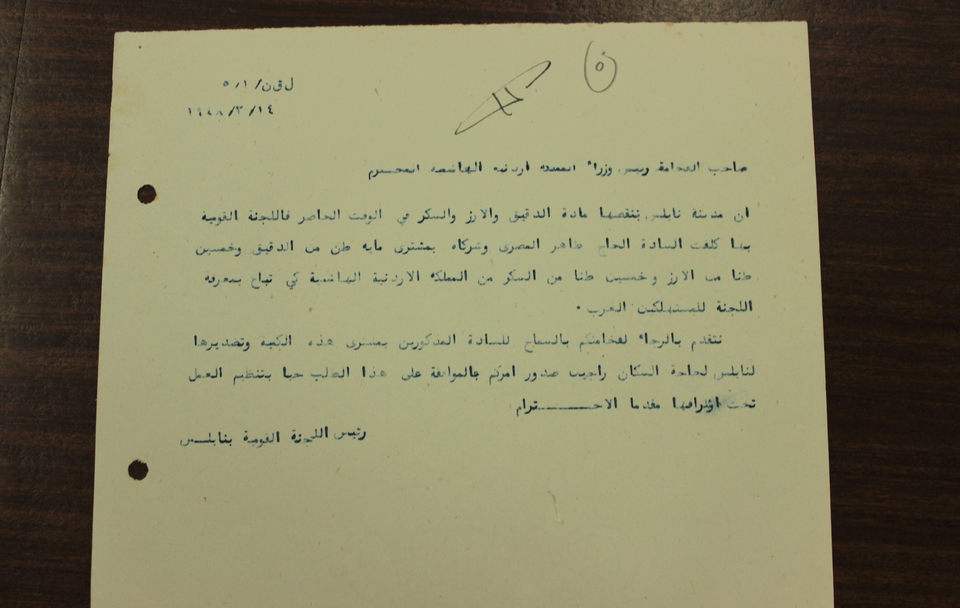 ل ق ن/٥/١
١٩٤٨/٣/١٤
٥
صاحب الفخامة رئيس وزراء المملكة الاردنية الهاشمية المحترم
ان مدينة نابلس ينقصها مادة الدقيق والارز والسكر في الوقت الحاضر فاللجنة القومية
بها كلفت السادة الحاج طاهر المصرى وشركاه بمشترى مايه طن من الدقيق وخمسين
طنا من الارز وخمسين طنا من السكر من المملكة الاردنية الهاشمية كي تباع بمعرفة
اللجنة للمستهلكين العرب .
نتقدم بالرجاء لفخامتكم بالسماح للسادة المذكورين بمشترى هذه الكميه وتصديرها
لنابلس لحاجة السكان راجين صدور امركم بالموافقة على هذا الطلب حبا بتنظيم العمل
تحت اشرافها مقدما الاحـــــــترام
رئيس اللجنة القومية بنابلــس